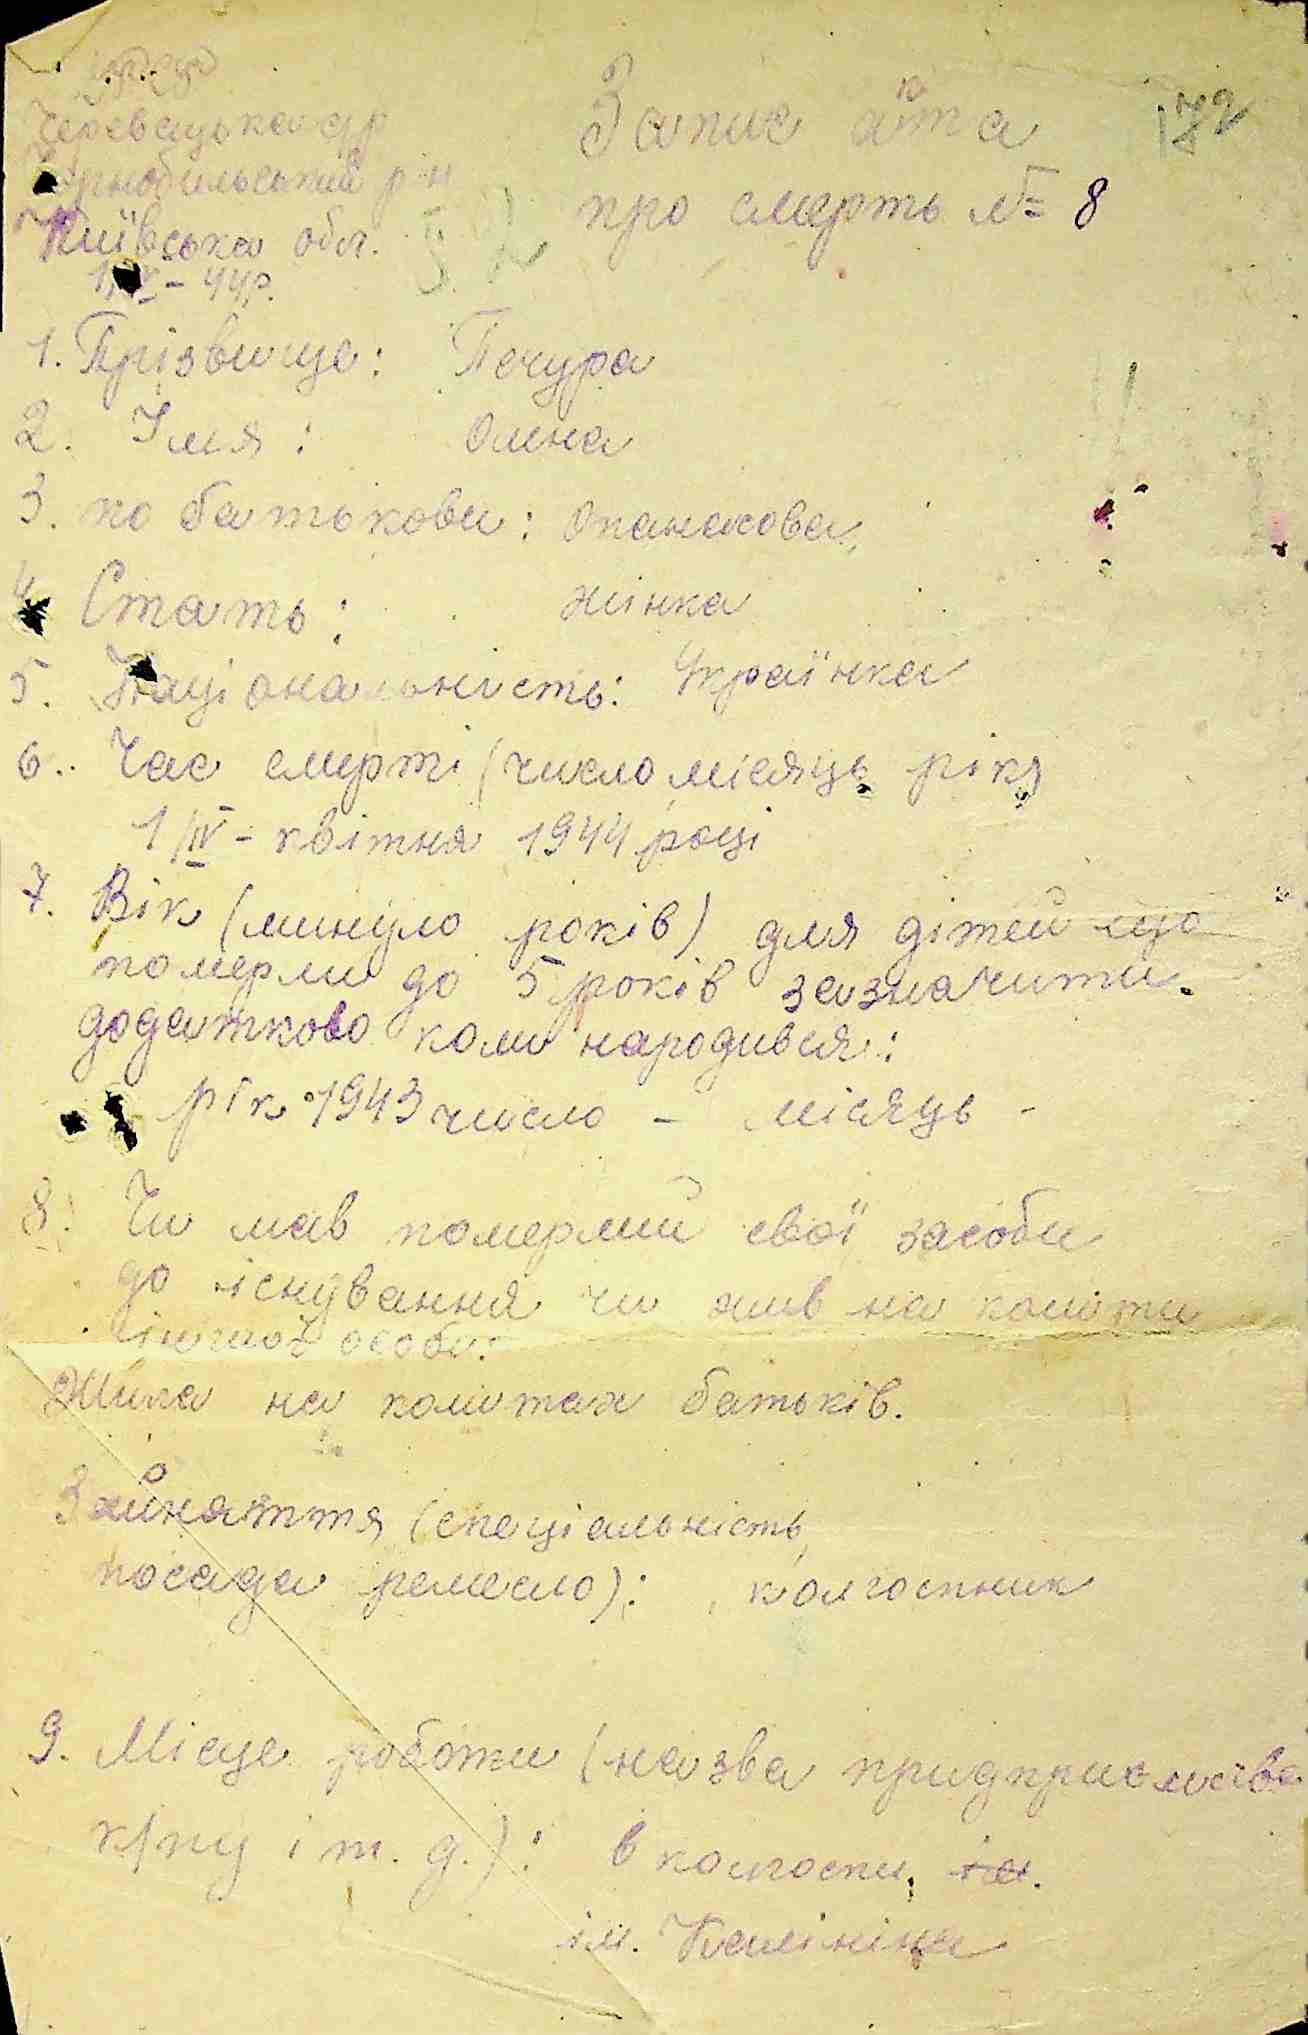 Черевацька с/р
Чорнобильський р-н
Київська обл.
1/IV - 44р.
Запис акта
про смерть № 8
172
1. Прізвище: Печура
2. Імя: Олена
3. по батькови: Опанасова
4. Стать: жінка
5. Національність: Українка
6. Час смерті (число місяць рік)
1/IV - квітня 1944 році
7. Вік (минуло років) для дітей що
померли до 5 років зазначити
додатково коли народився:
рік 1943 число - місяць -
8. Чи мав померлий свої засоби
до існування чи жив на кошти
іншої особи:
Жила на коштах батьків.
Зайняття (спеціальність
посада ремесло): колгоспник
9. Місце роботи (назва придприємства
к/пу і т. д.): в колгоспи ім.
ім. Калініна